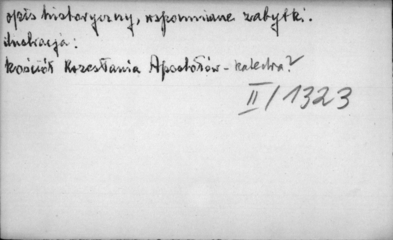 opis historyczny, wspomniane zabytki.
ilustracja:
kościół Rozesłania Apostołów - katedra?
II/1323